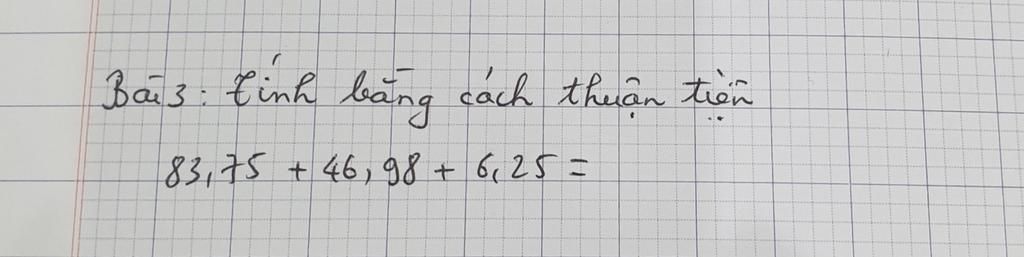 Bài 3: tính bằng cách thuận tiện
83,75 + 46,98 + 6,25 =